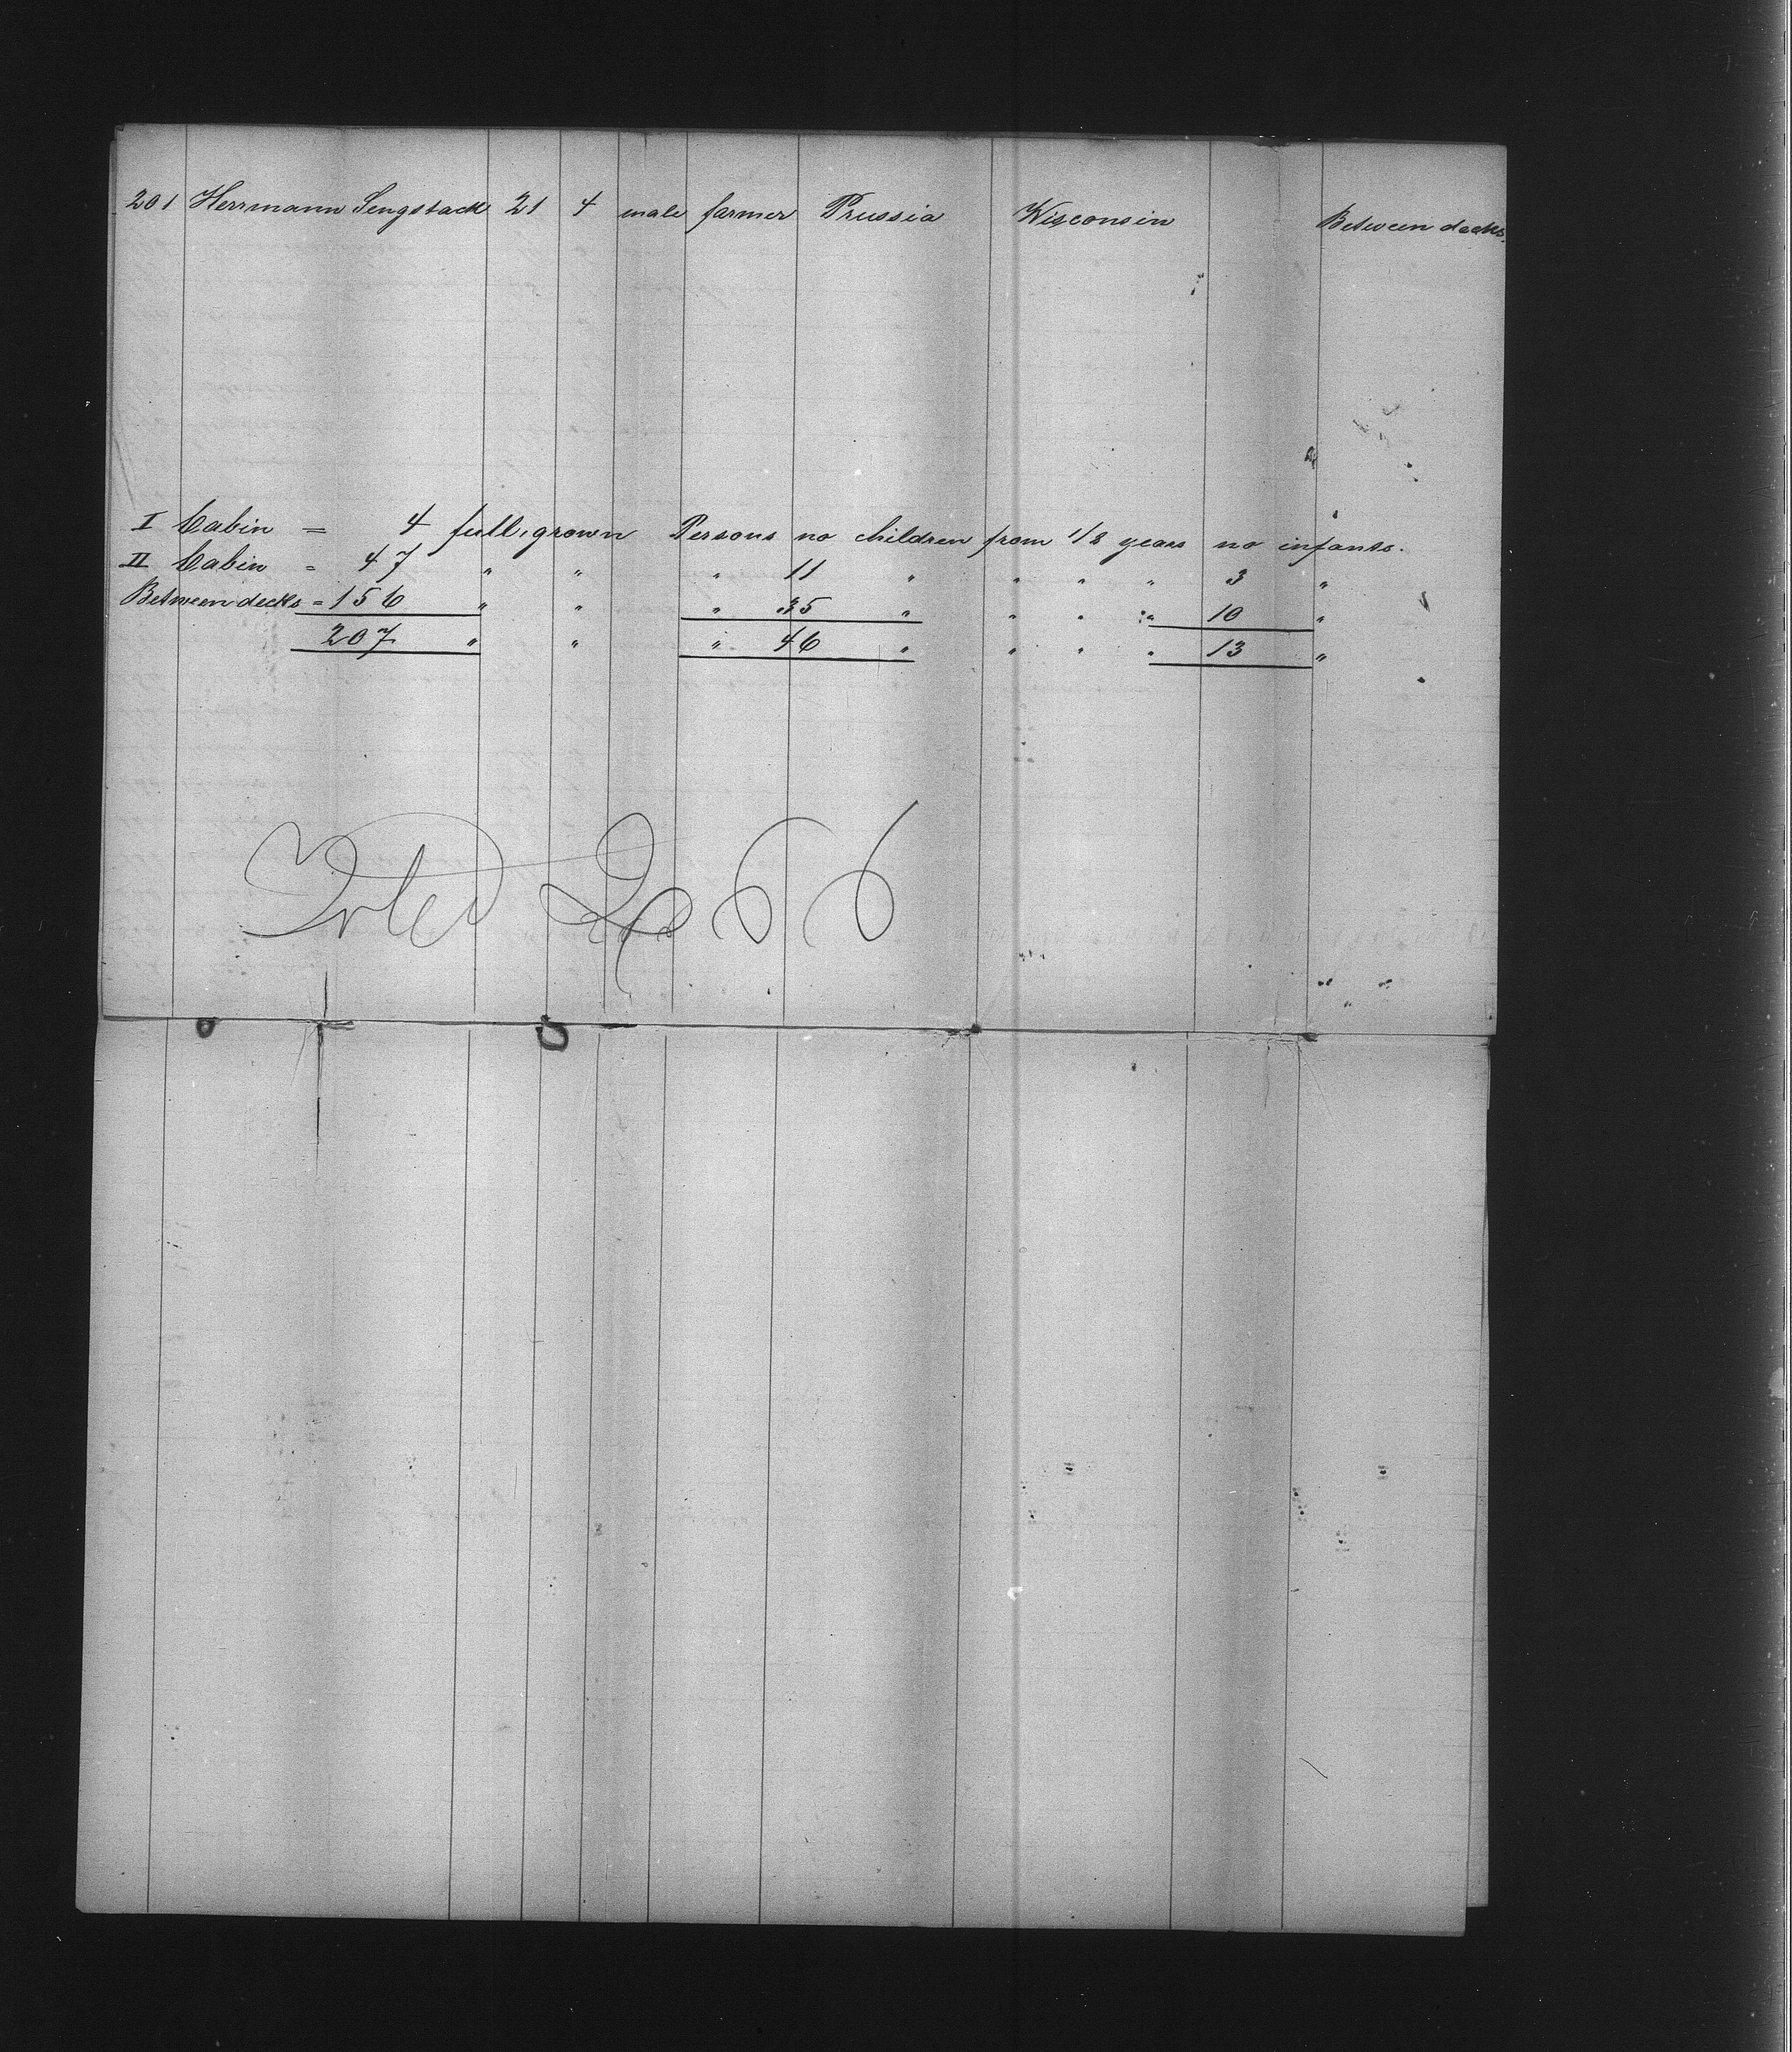 201 Herrmann Sengstack 21 4 male farmer Prussia Wisconsin Between decks.
I Cabin = 4 full grown Persons no children from 1/8 years no infants.
II Cabin = 47 " " " 11 " " " " 3 "
Between decks = 156 " " " 35 " " " " 10 "
207 " " " 46 " " " " 13 "
Total 266